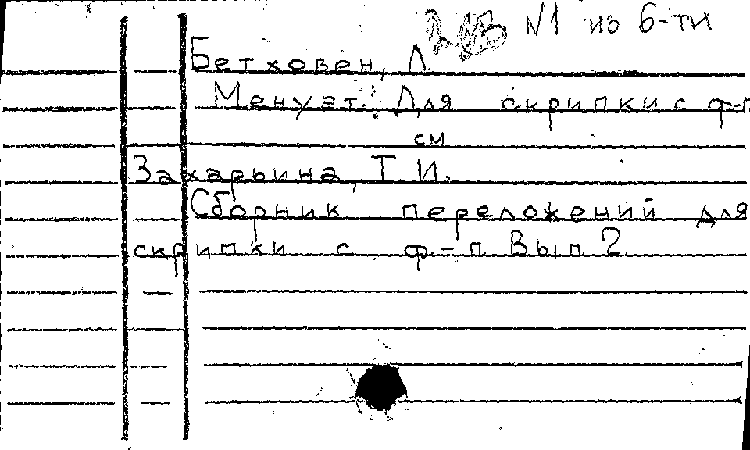 №1 из 6-ти
Бетховен, Л
Менуэт. Для скрипки с ф-п
см
Захарьина, Т. И.
Сборник переложений для
скрипки с ф-п Вып 2